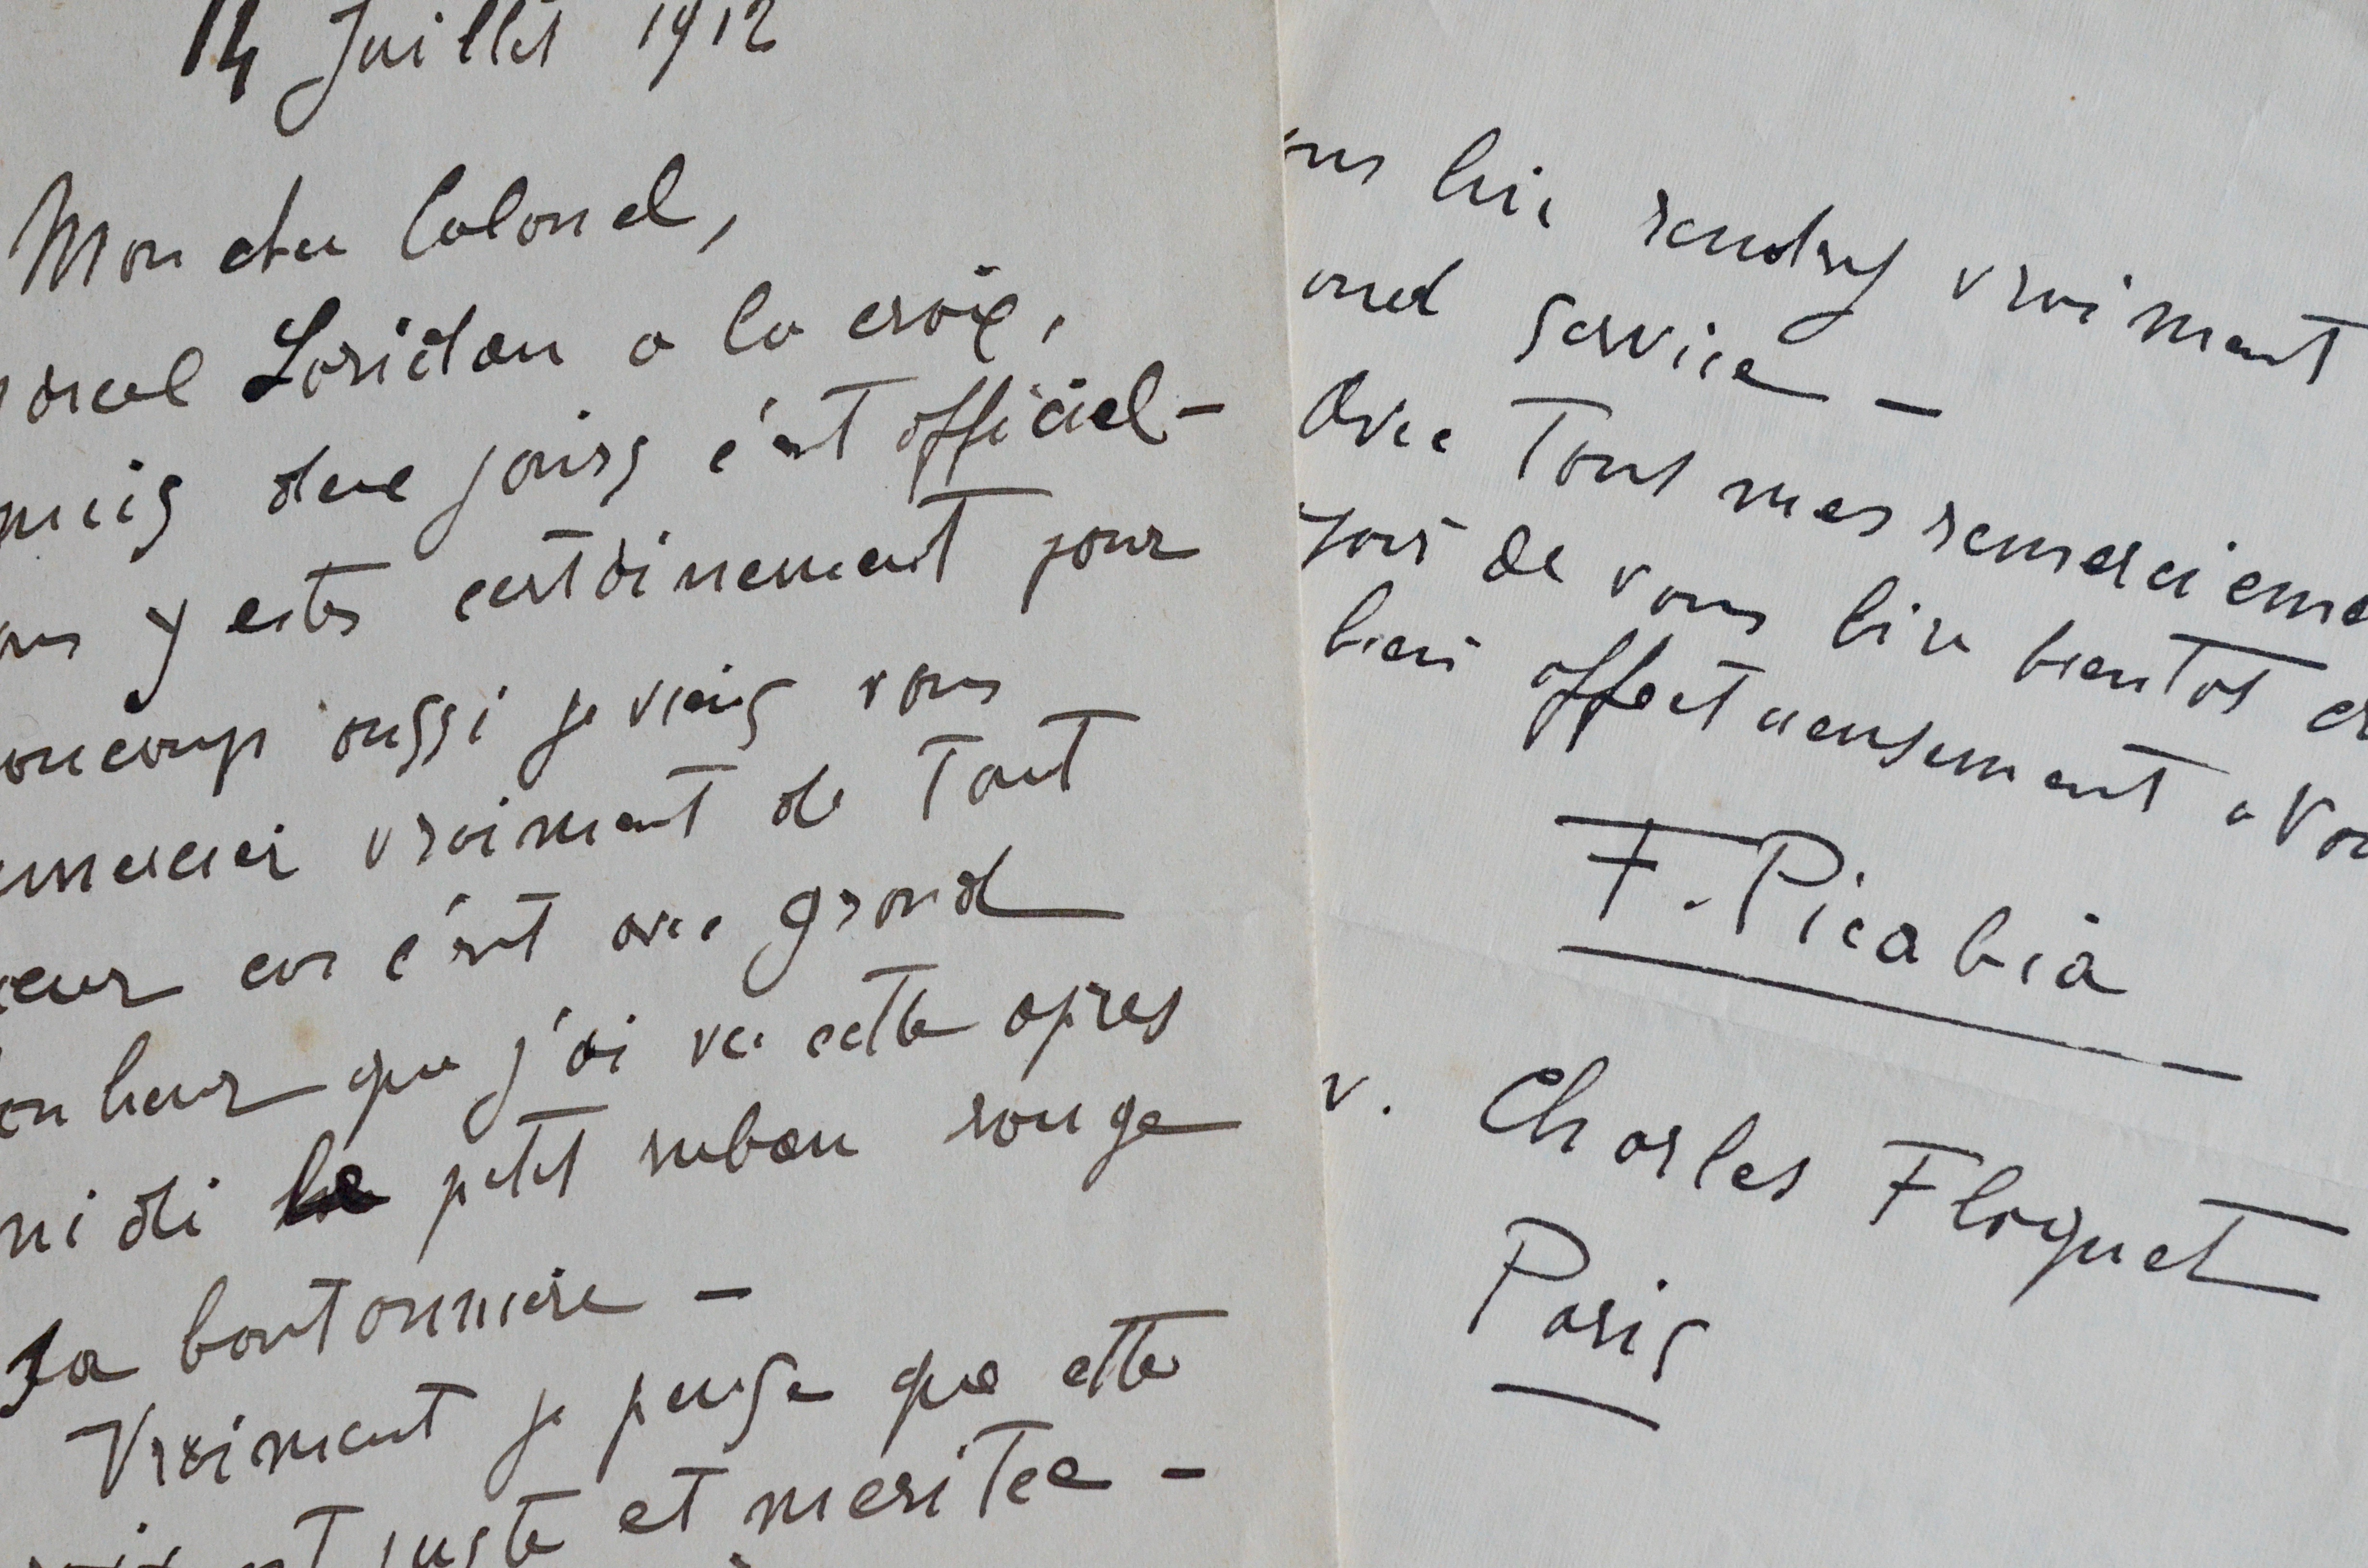 14 Juillet 1912
Mon cher Colonel,
Loridan a la croix,
deux jours c'est officiel –
y etes certainement pour
aussi je viens vous
vraiment de tout
car c'est avec grand
que j'ai vu cette apres
le petit ruban rouge
sa boutonniere –
Vraiment je pense que cette
est juste et meritee –
rendrez vraiment
service –
Avec tous mes
de vous lire bientot
bien affectueusement a
F. Picabia
v. Charles Floquet
Paris